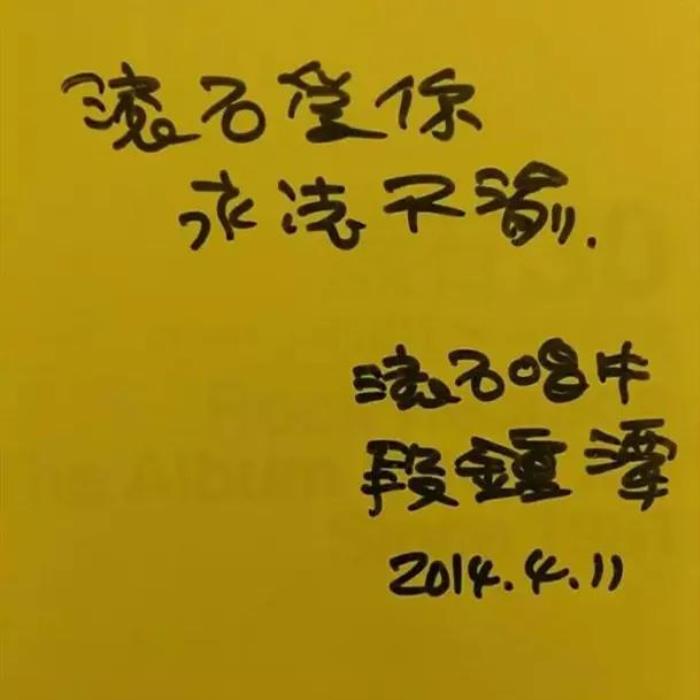 滾石愛你
永誌不渝.
滾石唱片
段鍾潭
2014.4.11